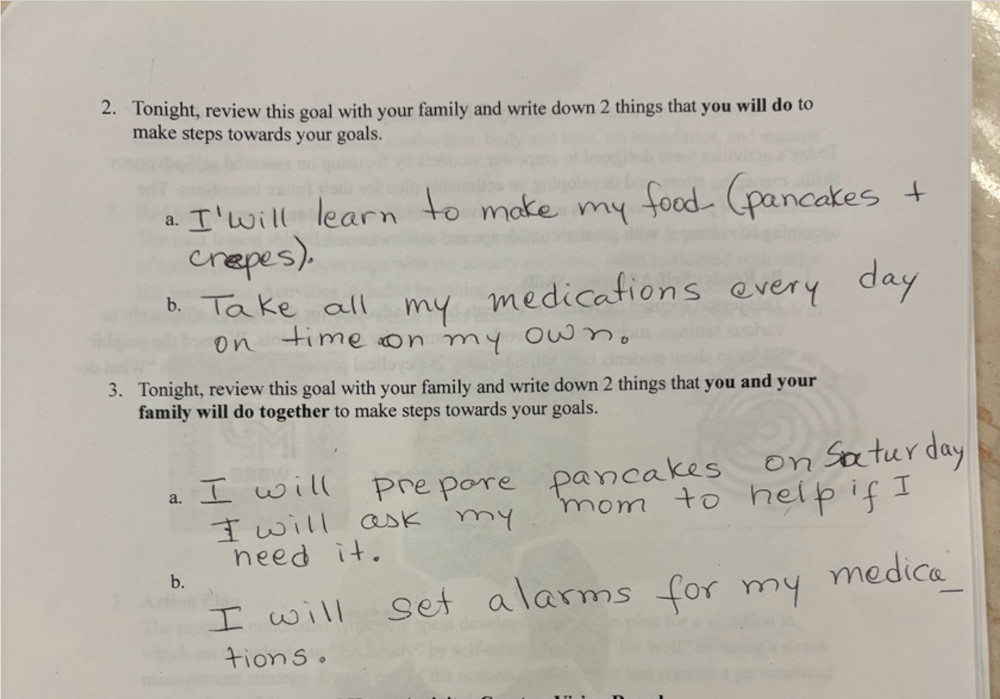 2. Tonight, review this goal with your family and write down 2 things that you will do to
make steps towards your goals.
a. I'will learn to make my food (pancakes +
crepes).
b. Take all my medications every day
on time on my own.
3. Tonight, review this goal with your family and write down 2 things that you and your
family will do together to make steps towards your goals.
a. I will prepare pancakes on Saturday
I will ask my mom to help if I
need it.
b.
I will set alarms for my medica_
tions.